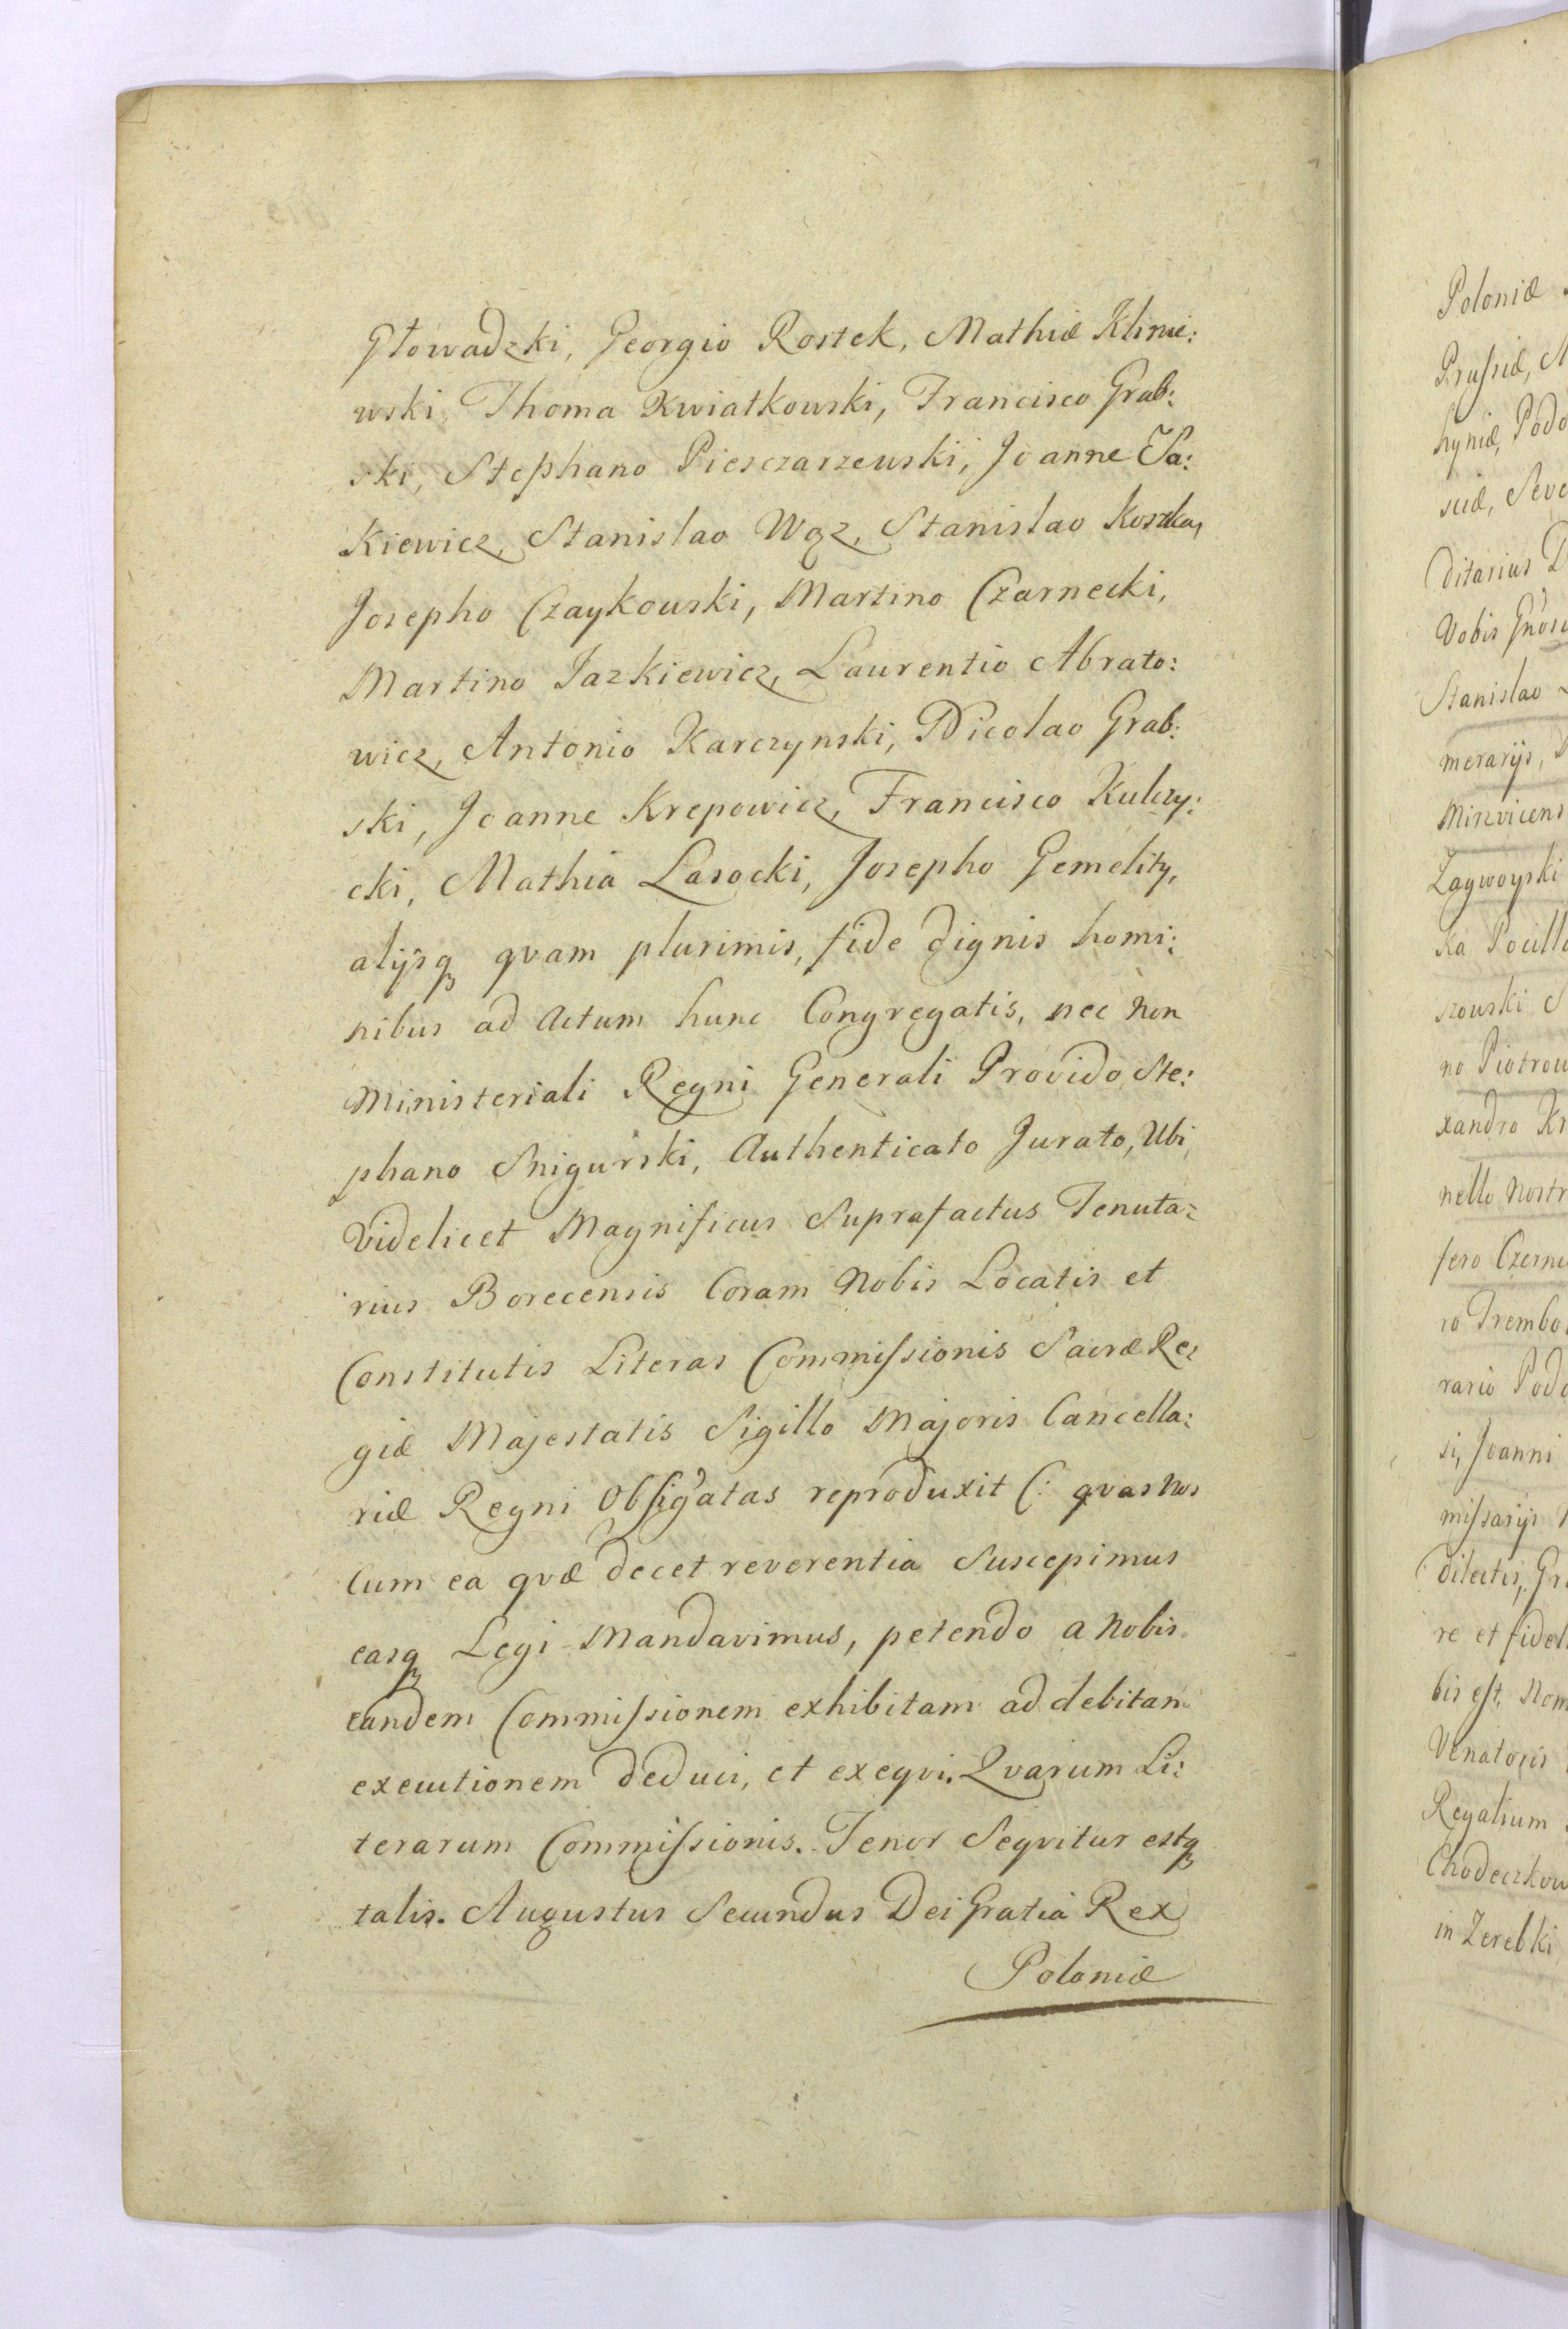 Głowadzki, Georgio Rostek, Mathiæ Klinie:
wski, Thoma Kwiatkowski, Francisco Grab:
ski, Stephano Piesczarzewski, Joanne Sa:
Kiewicz, Stanislao Wąz, Stanislao Koszka,
Josepho Czaykowski, Martino Czarnecki,
Martino Jazkiewicz, Laurentio Abrato:
wicz, Antonio Karczynski, Nicolao Grab:
ski, Joanne Krepowicz, Francisco Kulczy:
cki, Mathia Lasocki, Josepho Gemelity,
alijsq quam plurimis, fide dignis homi:
nibus ad Actum hunc Congregatis, nec Non
Ministeriali Regni Generali Provido Ste:
phano Snigurski, Authenticato Jurato, Ubi
Videlicet Magnificus Suprafactus Tenuta:
rius Borecensis Coram Nobis Locatis et
Constitutis Literas Commissionis Sacræ Re:
giæ Majestatis Sigillo Majoris Cancella:
riæ Regni Obsig̃atas reproduxit (: qvas Nos
Cum ea qvæ decet reverentia Suscepimus
easq Legi Mandavimus, petendo a Nobis
eandem Commissionem exhibitam ad debitam
executionem deduci, et exeqvi. Qvarum Li:
terarum Commissionis. Tenor Seqvitur estq
talis. Augustus Secundus Dei Gratia Rex
Poloniæ
Poloniæ
Prussiæ,
hyniæ, Podo
sciæ, Seve
ditarius D
Vobis
Stanislao
merarijs,
Zaywoyski
Ka Pocill
szowski S
no Piotrow
xandro Kr
nello Nostr
fero Czerni
io Trembo
rario Podo
si, Joanni
missarijs
dilectis, Gr
re et fidel
bis est. Nom
Venatoris
Regalium
Chodeczkow
in Zerebki